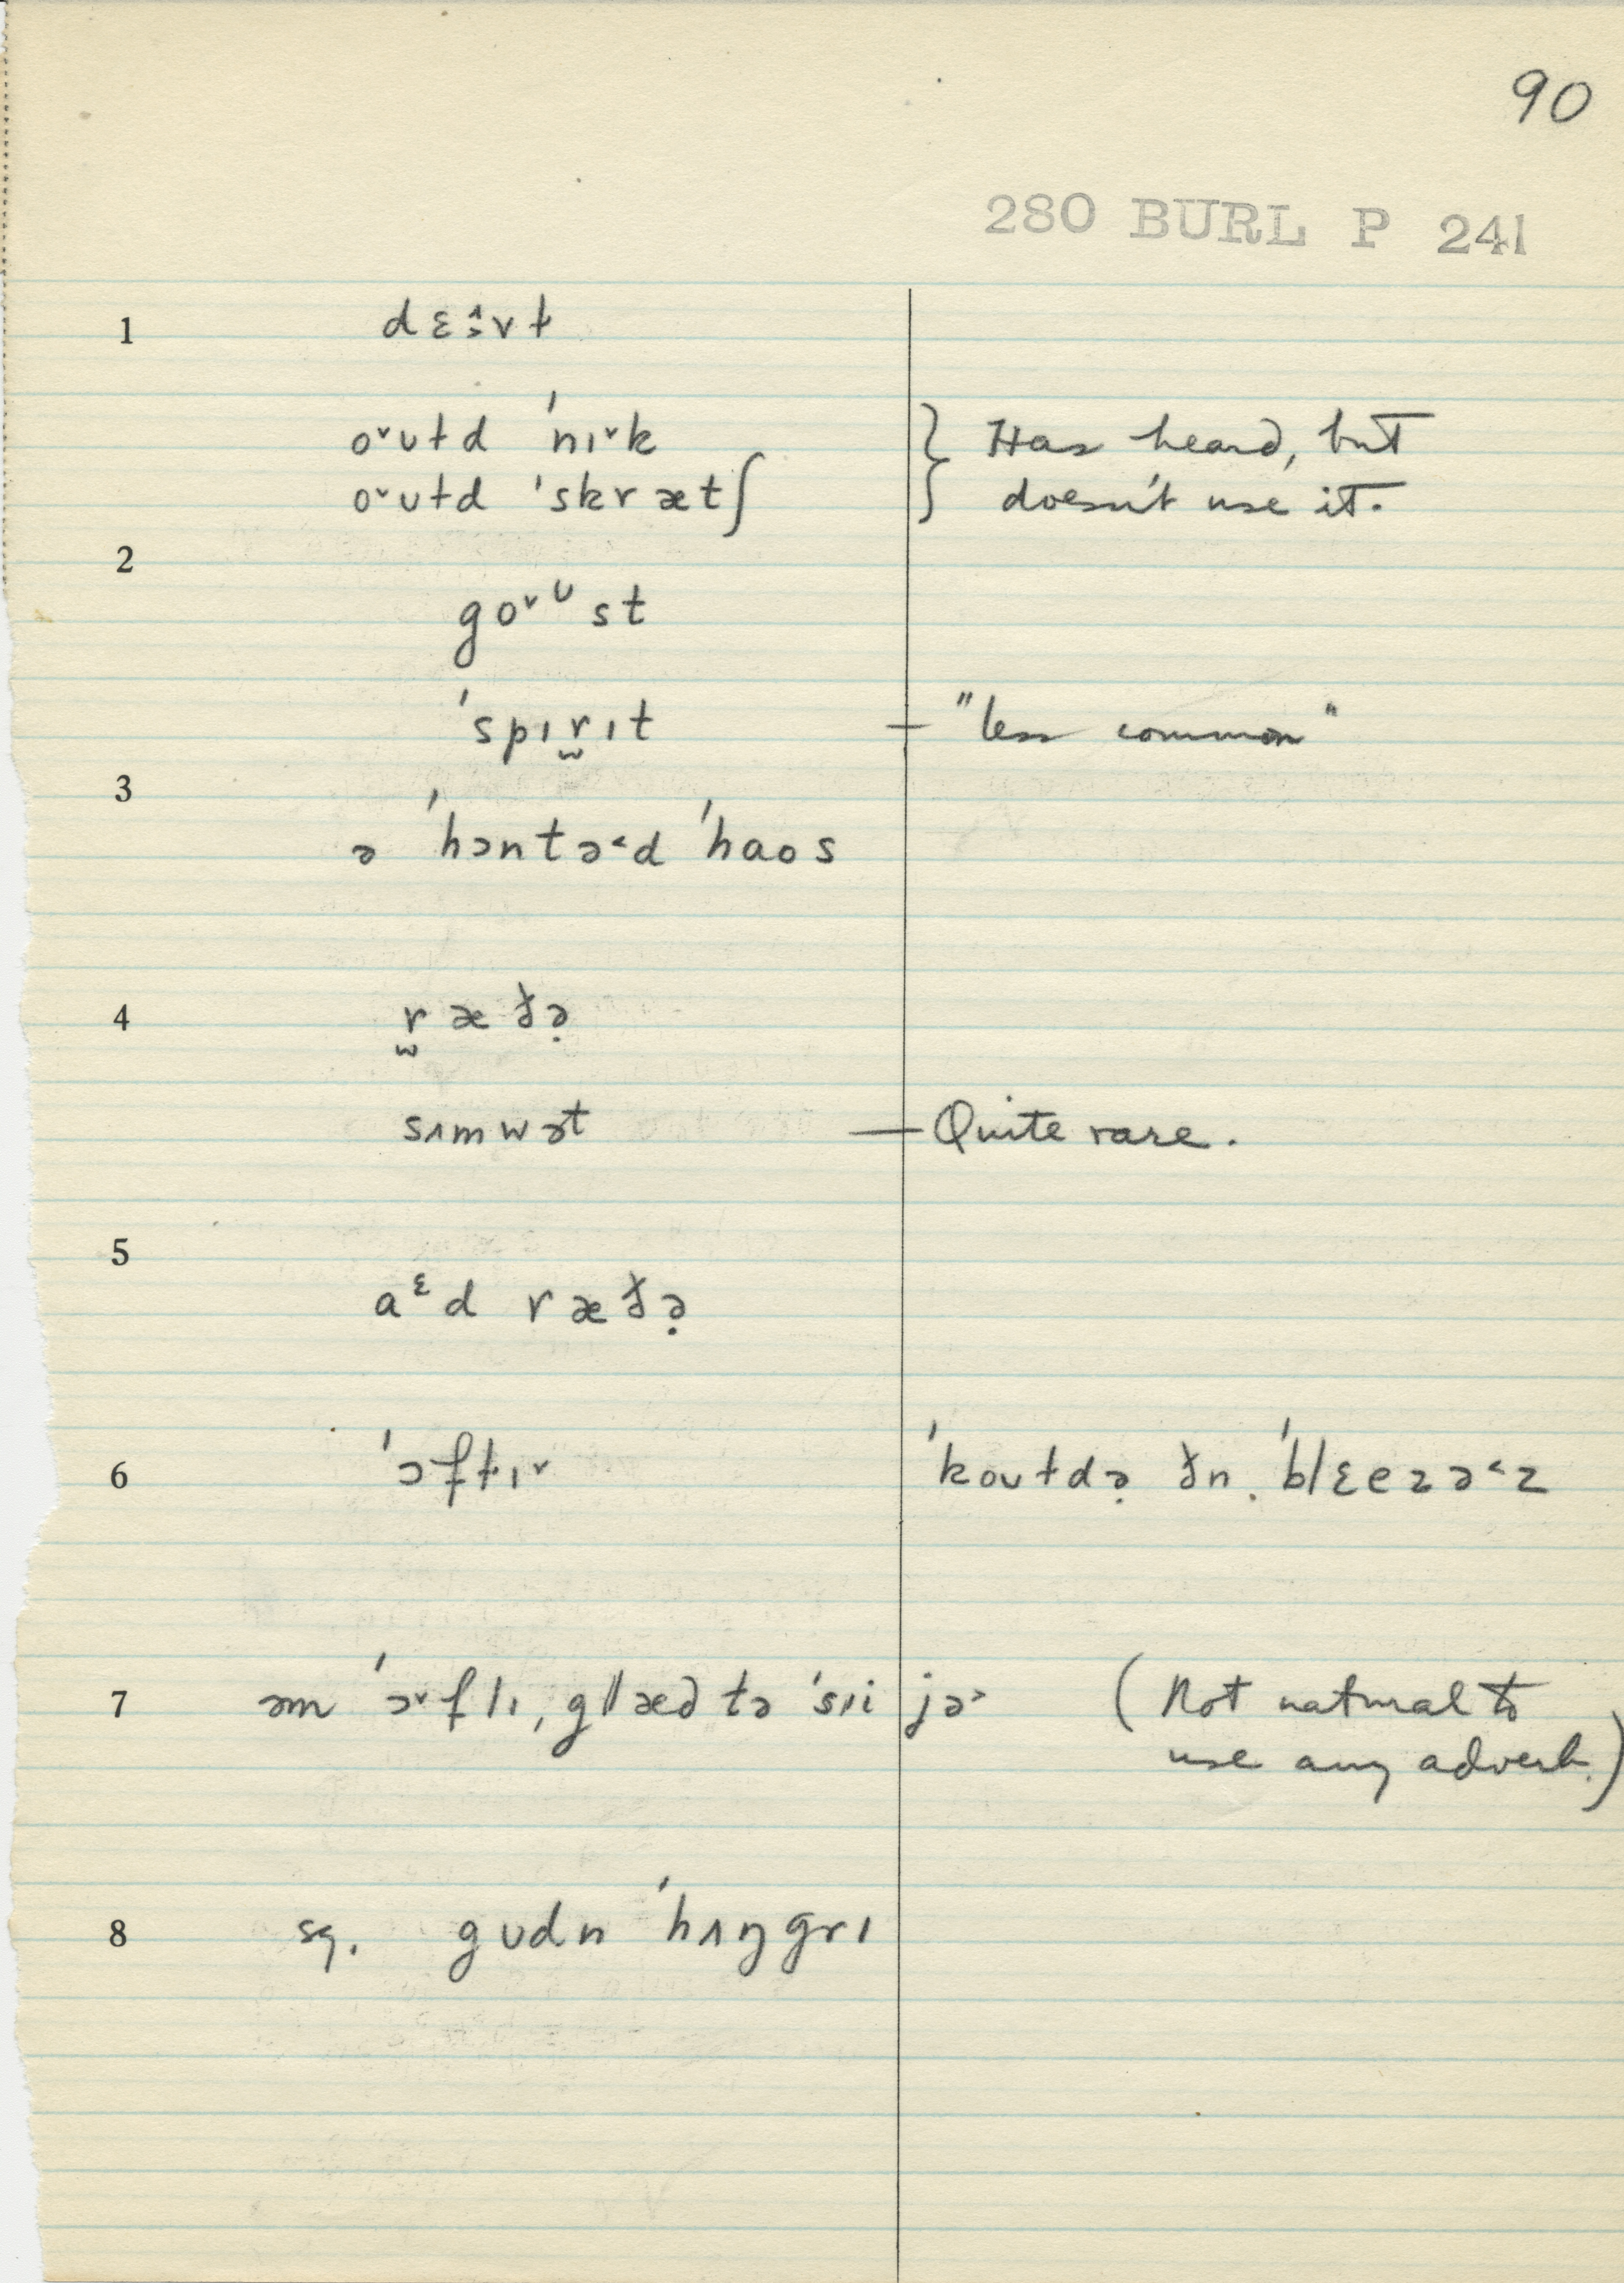 90
280 BURL P 241
1 dɛɪ̯̂vɫ
o˅ʊɫd ˈnɪ˅k } Has heard, but
o˅ʊɫd ˈskrætʃ } doesn't use it.
2
go˅ᶷst
ˈspɪr̫ɪt — "less common"
3
ə ˈhɔntə˂d ˈhaos
4 r̫æðə̣
sʌmwət — Quite rare.
5
aᵋd ræðə̣
6 ˈɔfɫɪ˅ ˈkoʊɫdə̣ ðn̩ ˈblɛezə˂z
7 əm ˈɔ˅flɪ, glæd tə ˈsɪi jə˃ (Not natural to
use any adverb.)
8 sq. gʊdn ˈhʌŋgrɪ